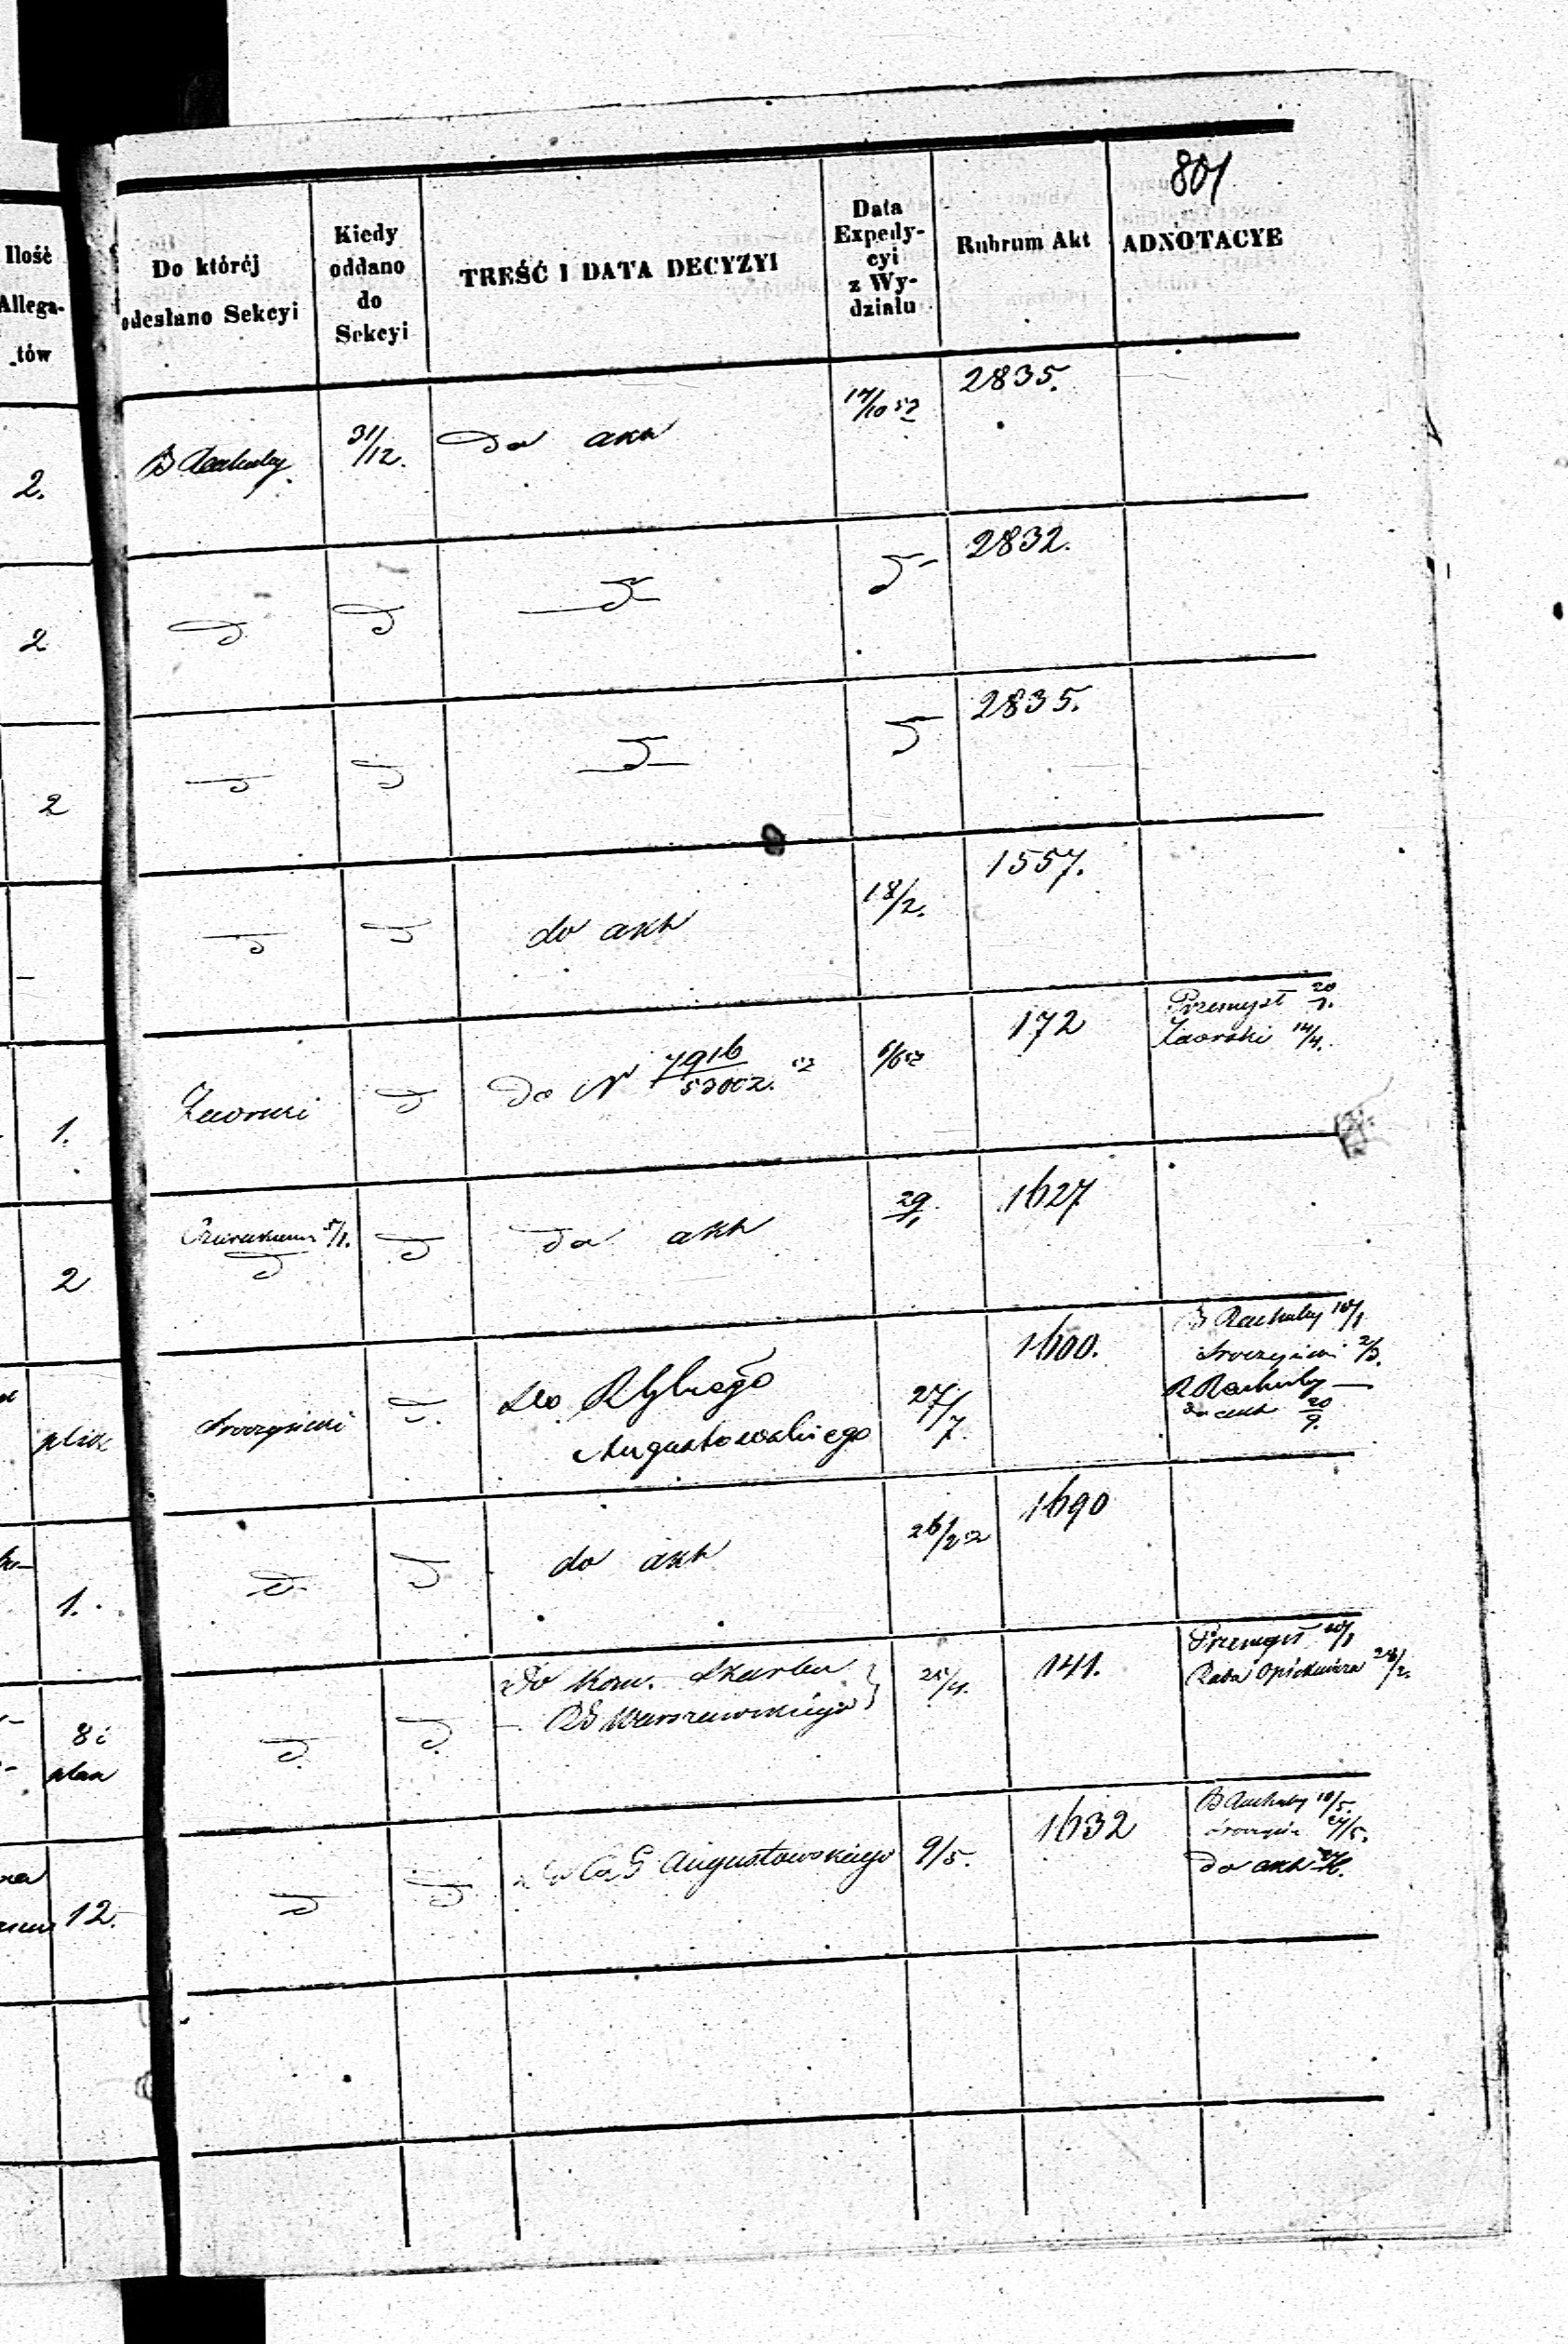 801
Ilość
Allega-
tów
Do któréj
odesłano Sekcyi
Kiedy
oddano
do
Sekcyi
TREŚĆ I DATA DECYZYI
Data
Expedy-
cyi
z Wy-
działu
Rubrum Akt
ADNOTACYE
2.
B Rachuby
31/12.
Do akt
17/10 52
2835.
2
2832.
2
2835.
do akt
18/2.
1557.
1.
Zaorski
Do N 7916/53002. 52
6/6 52
172
Przemysł 20/1.
Zaorski 14/4.
2
5/1.
do akt
29/1
1627
plik
Sroczyński
Do R Głnego
Augustowskiego
27/7.
1600.
B Rachuby 10/1
Sroczyński 2/3.
R Rachuby
do akt 20/9.
1.
do akt
26/2 52
1690
8 i
plan
Do Kom. Skarbu
RG Warszawskiego
25/4.
141.
Przemysł
Rada Opiekuńcza 28/2.
12.
G Augustowskiego
9/5.
1632
B Rachuby 10/5.
do akt